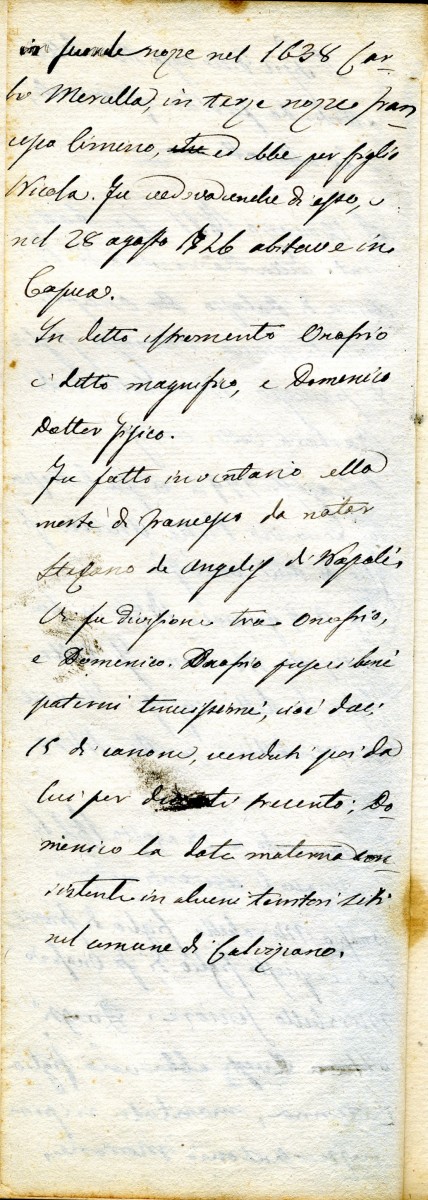 in seconde nozze nel 1638 Car-
lo Merella, in terze nozze Fran
cesco Cimino, ed ebbe per figlio
Nicola. Fu vedova anche di esso, e
nel 28 agosto 1726 abitava in
Capua.
In detto istromento Onofrio
è detto magnifico, e Domenico
Dotter fisico.
Fu fatto inventario alla
morte di Francesco da notar
Stefano de Angelis di Napoli.
Vi fu divisione tra Onofrio,
e Domenico. Onofrio prese i beni
paterni tenuissimi, cioè doc.i
15 di canone, venduti poi da
lui per docati trecento; Do-
menico la dote materna con-
sistente in alcuni territori siti
nel comune di Calvizzano.